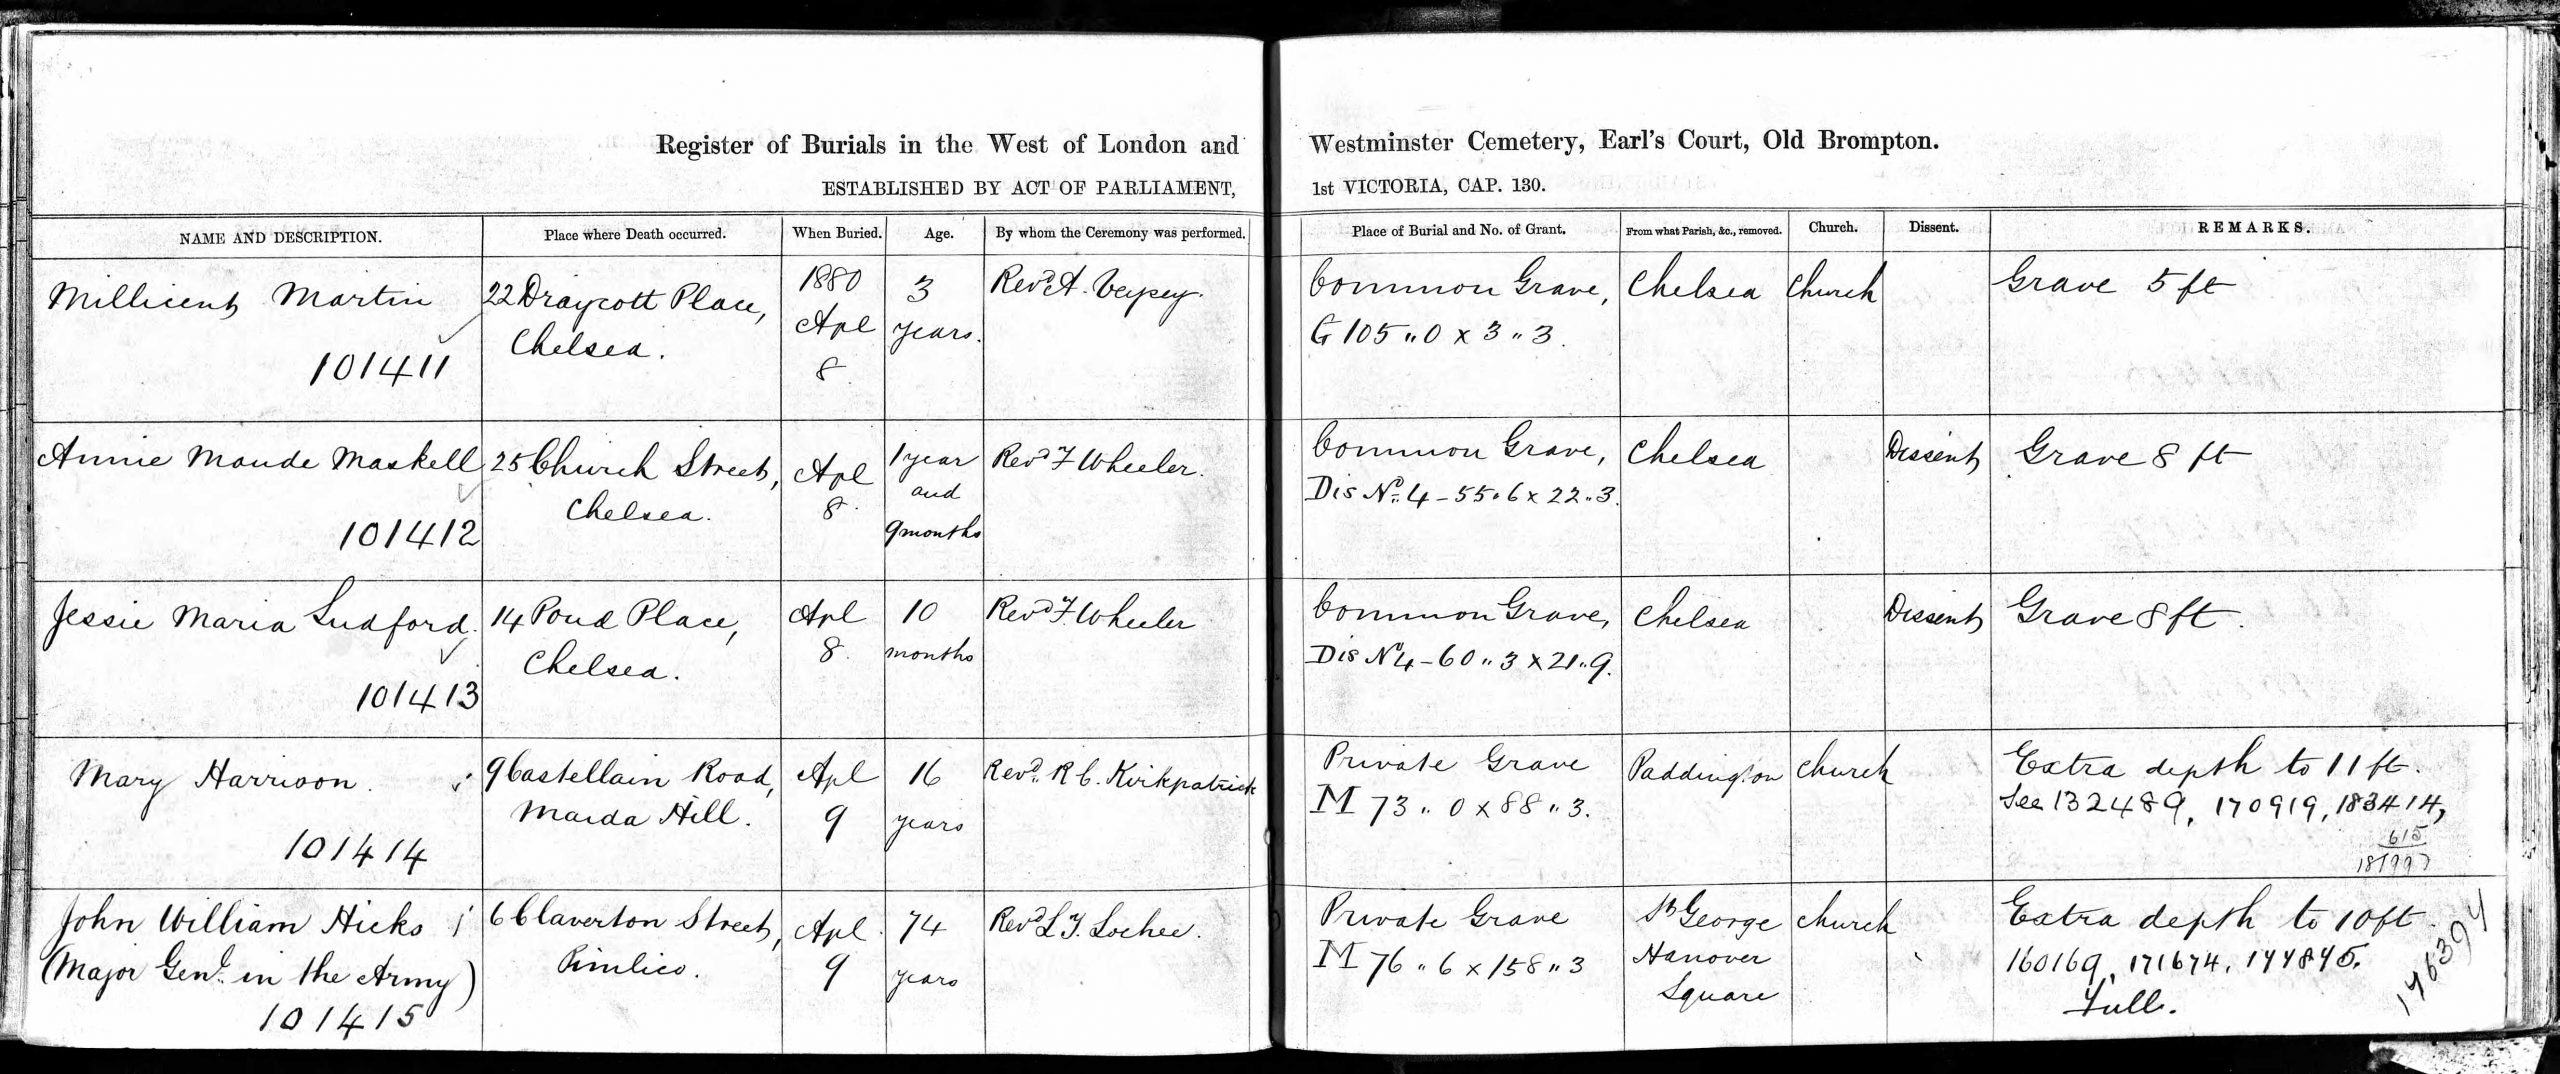 Register of Burials in the West of London and Westminster Cemetery, Earl's Court, Old Brompton.
ESTABLISHED BY ACT OF PARLIAMENT, 1st VICTORIA, CAP. 130.
NAME AND DESCRIPTION. Place where Death occurred. When Buried. Age. By whom the Ceremony was performed. Place of Burial and No. of Grant. From what Parish, &c., removed. Church. Dissent. REMARKS.
Millicent Martin
101411
22 Draycott Place,
Chelsea.
1880
Apl
8
3
years.
Revd A.
Common Grave,
G 105 " 0 x 3 " 3.
Chelsea
Church
Grave 5 ft
Annie Maude Maskell
101412
25 Church Street,
Chelsea.
Apl
8.
1 year
and
9 months
Revd F Wheeler.
Common Grave,
Dis No. 4 - 55 " 6 x 22 " 3.
Chelsea
Dissent
Grave 8 ft
Jessie Maria Ludford.
101413
14 Pond Place,
Chelsea.
Apl
8.
10
months
Revd F Wheeler
Common Grave,
Dis No 4 - 60 " 3 x 21 " 9.
Chelsea
Dissent
Grave 8 ft.
Mary Harrison.
101414
9 Castellain Road,
Maida Hill.
Apl
9
16
years
Revd. R C. Kirkpatrick
Private Grave
M 73 " 0 x 88 " 3.
Paddington
Church
Extra depth to 11 ft.
See 132489, 170919, 183414,
615
John William Hicks
(Major Genl. in the Army)
101415
6 Claverton Street,
Pimlico.
Apl
9
74
years
Revd L. Y. Lochee.
Private Grave
M 76 " 6 x 158 " 3
St George
Hanover
Square
Church
Extra depth to 10 ft.
160169, 171674,
Full.